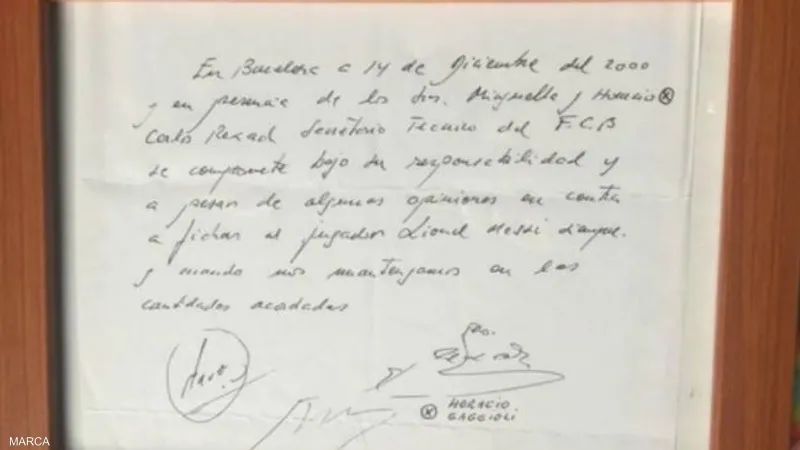 En Barcelona a 14 de Diciembre del 2000
y en presencia de los Sres. Minguella y Horacio ⓧ
Carlos Rexach Secretario Tecnico del F.C.B
se compromete bajo su responsabilidad y
a pesar de algunas opiniones en contra
a fichar al jugador Lionel Messi siempre
y cuando nos mantengamos en las
cantidades acordadas
ⓧ HORACIO
GAGGIOLI
MARCA